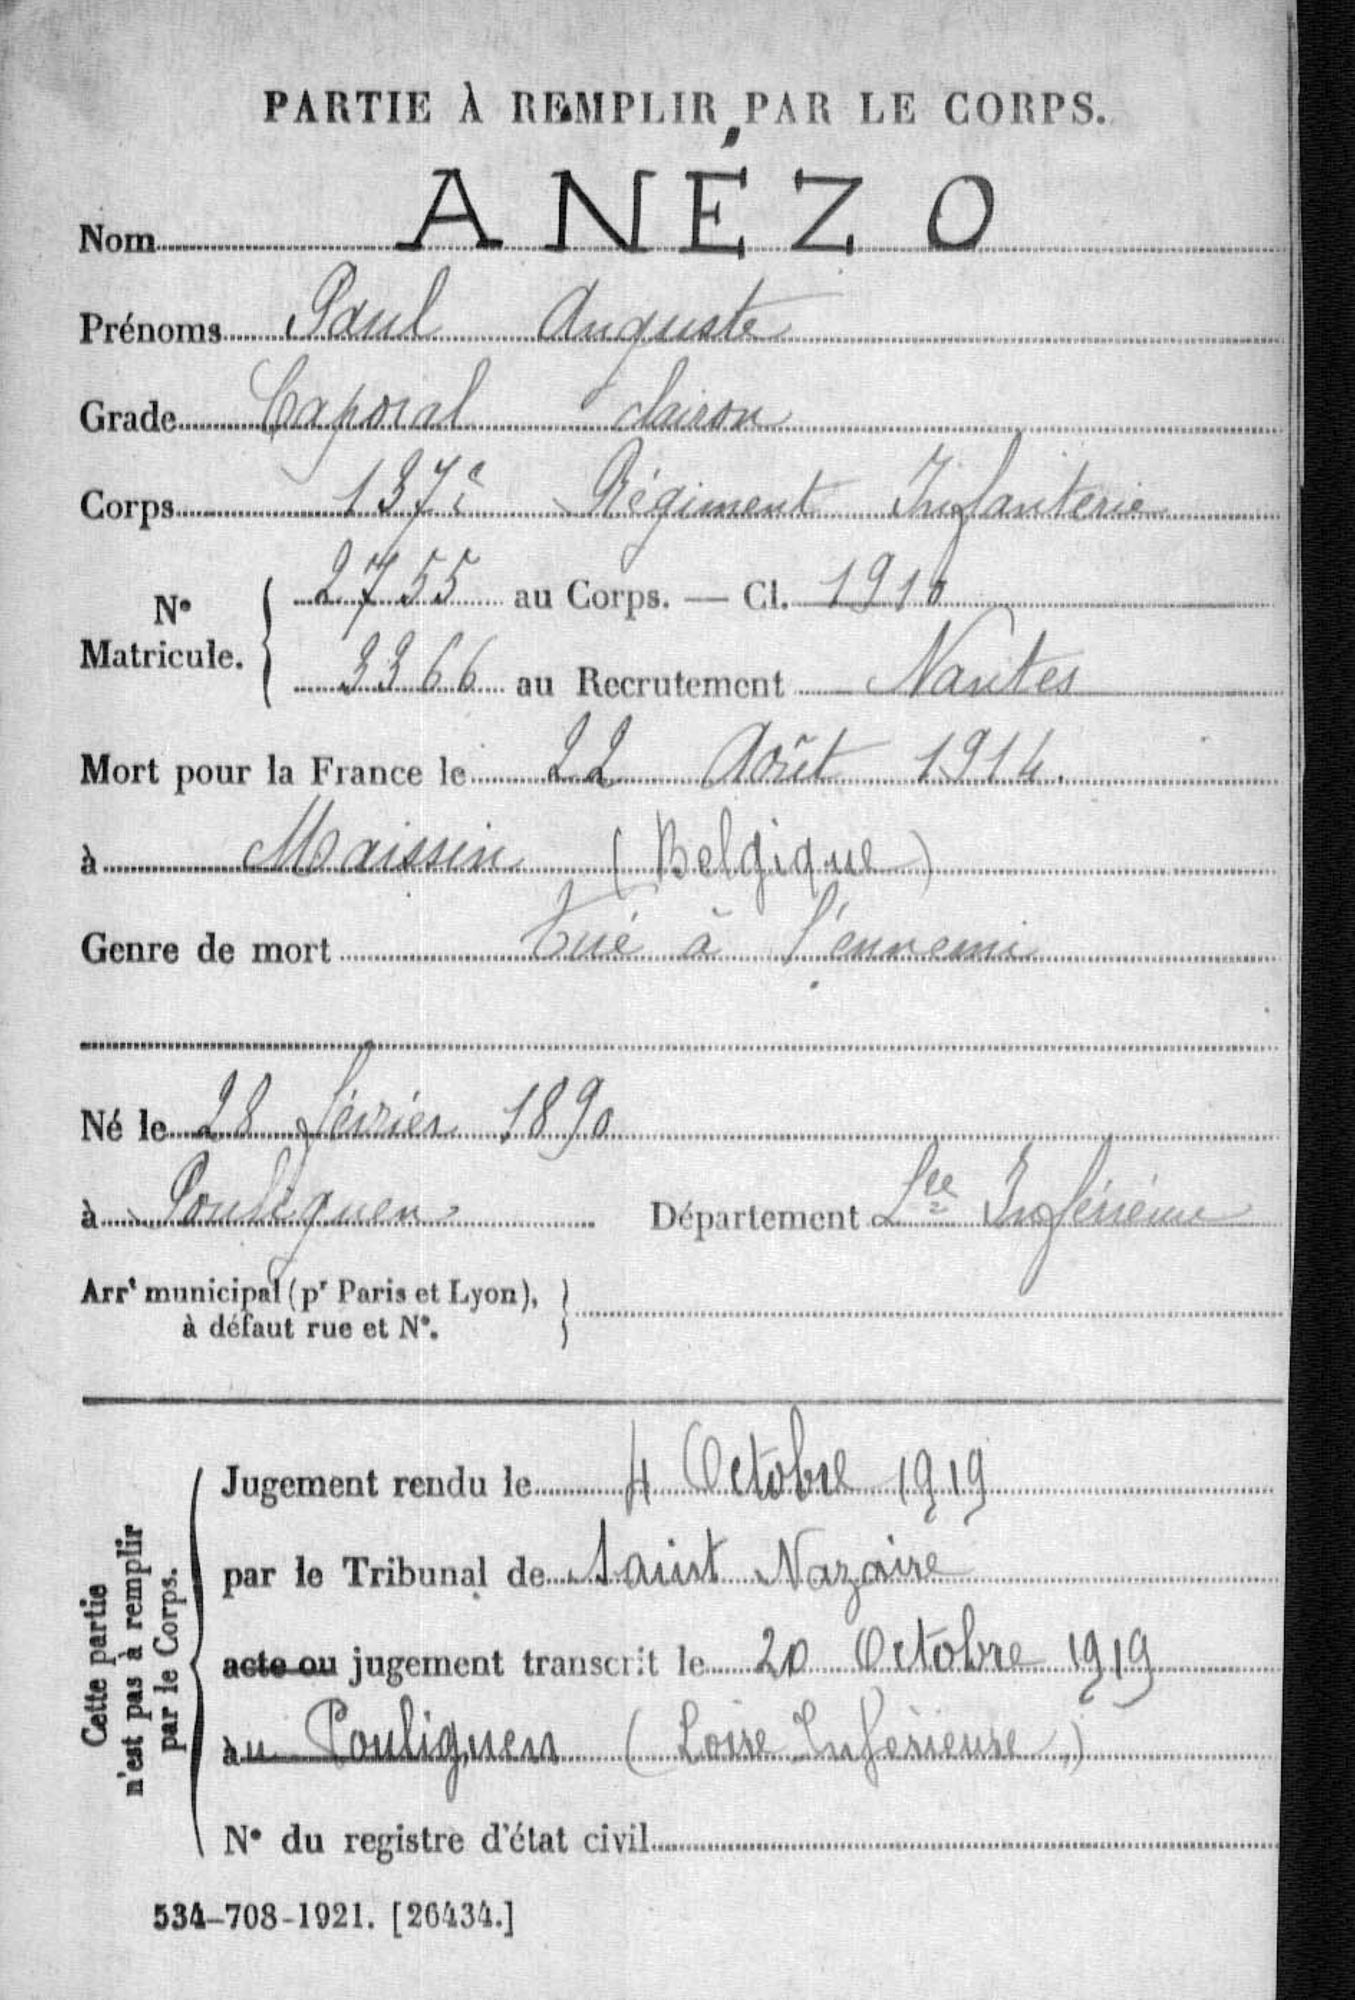 PARTIE À REMPLIR PAR LE CORPS.
Nom ANÉZO
Prénoms Paul Auguste
Grade Caporal clairon
Corps 137e Régiment Infanterie
N° Matricule. { 2755 au Corps. — Cl. 1910
3366 au Recrutement Nantes
Mort pour la France le 22 Août 1914.
à Maissin (Belgique)
Genre de mort Tué à l'ennemi
Né le 28 février 1890
à Pouliguen Département Lre Inférieure
Arrt municipal (pr Paris et Lyon),
à défaut rue et N°.
Cette partie
n'est pas à remplir
par le Corps.
Jugement rendu le 4 Octobre 1919
par le Tribunal de Saint Nazaire
acte ou jugement transcrit le 20 Octobre 1919
àu Pouliguen (Loire Inférieure)
N° du registre d'état civil
534-708-1921. [26434.]